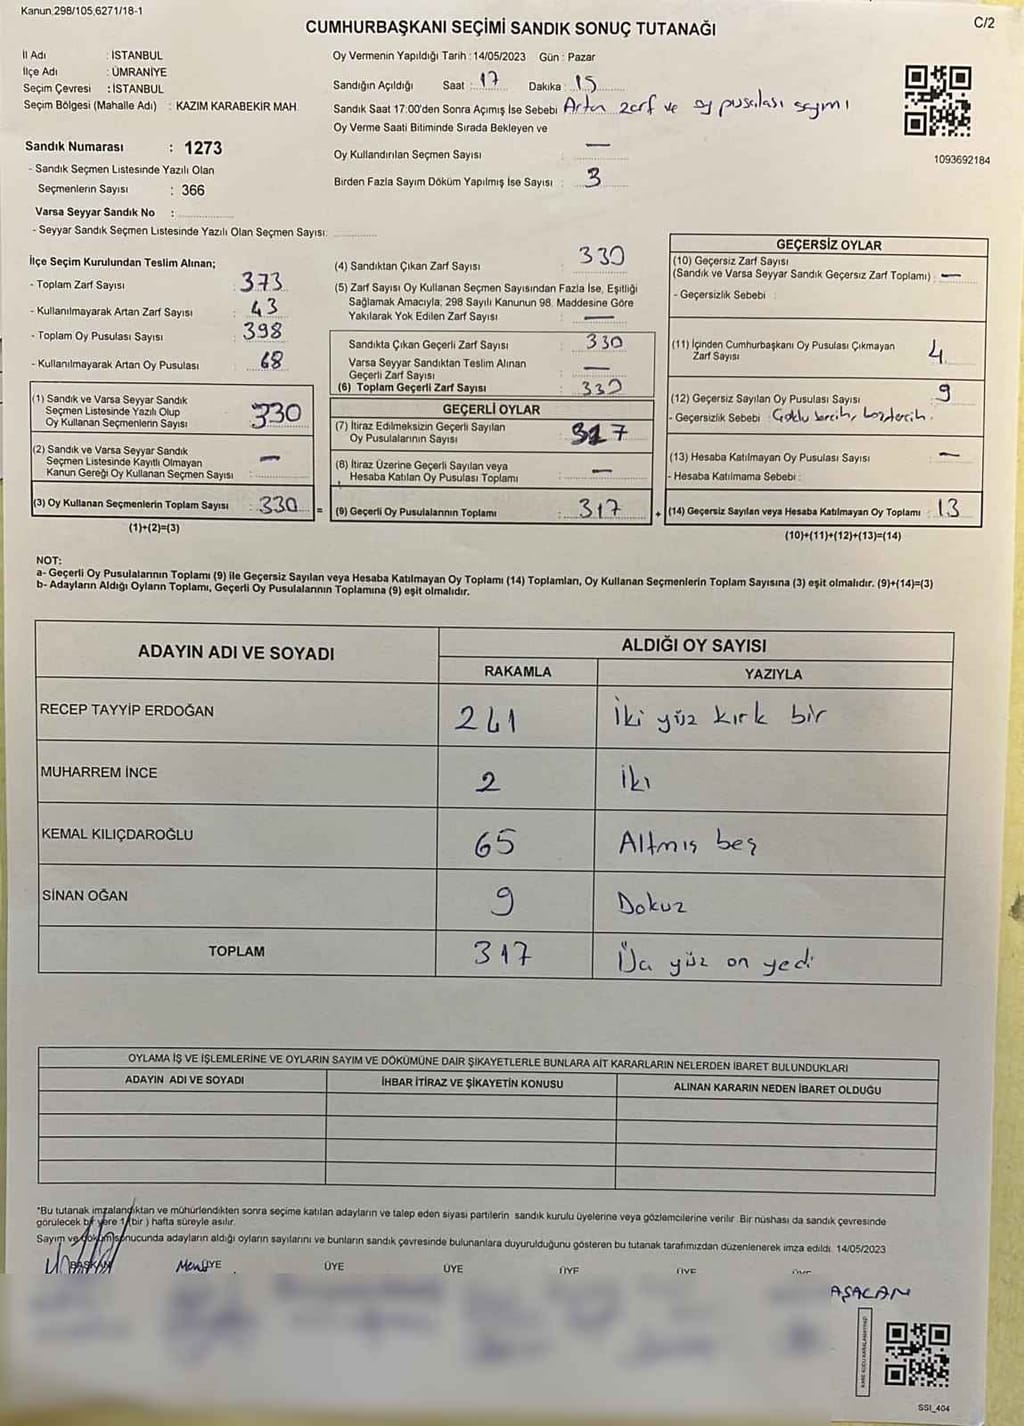 Kanun 298/105,6271/18-1
C/2
CUMHURBAŞKANI SEÇİMİ SANDIK SONUÇ TUTANAĞI
İl Adı : İSTANBUL
İlçe Adı : ÜMRANİYE
Seçim Çevresi : İSTANBUL
Seçim Bölgesi (Mahalle Adı) : KAZIM KARABEKİR MAH.
Sandık Numarası : 1273
- Sandık Seçmen Listesinde Yazılı Olan
Seçmenlerin Sayısı : 366
Varsa Seyyar Sandık No :
- Seyyar Sandık Seçmen Listesinde Yazılı Olan Seçmen Sayısı:
Oy Vermenin Yapıldığı Tarih : 14/05/2023 Gün : Pazar
Sandığın Açıldığı Saat : 17 Dakika : 15
Sandık Saat 17:00'den Sonra Açımış İse Sebebi Artan zarf ve oy pusulası sayımı
Oy Verme Saati Bitiminde Sırada Bekleyen ve
Oy Kullandırılan Seçmen Sayısı : —
Birden Fazla Sayım Döküm Yapılmış İse Sayısı : 3
1093692184
İlçe Seçim Kurulundan Teslim Alınan;
- Toplam Zarf Sayısı : 373
- Kullanılmayarak Artan Zarf Sayısı : 43
- Toplam Oy Pusulası Sayısı : 398
- Kullanılmayarak Artan Oy Pusulası : 68
(1) Sandık ve Varsa Seyyar Sandık
Seçmen Listesinde Yazılı Olup
Oy Kullanan Seçmenlerin Sayısı : 330
(2) Sandık ve Varsa Seyyar Sandık
Seçmen Listesinde Kayıtlı Olmayan
Kanun Gereği Oy Kullanan Seçmen Sayısı : —
(3) Oy Kullanan Seçmenlerin Toplam Sayısı : 330 =
(1)+(2)=(3)
(4) Sandıktan Çıkan Zarf Sayısı : 330
(5) Zarf Sayısı Oy Kullanan Seçmen Sayısından Fazla İse, Eşitliği
Sağlamak Amacıyla; 298 Sayılı Kanunun 98. Maddesine Göre
Yakılarak Yok Edilen Zarf Sayısı : —
Sandıkta Çıkan Geçerli Zarf Sayısı : 330
Varsa Seyyar Sandıktan Teslim Alınan
Geçerli Zarf Sayısı : —
(6) Toplam Geçerli Zarf Sayısı : 330
GEÇERLİ OYLAR
(7) İtiraz Edilmeksizin Geçerli Sayılan
Oy Pusulalarının Sayısı : 317
(8) İtiraz Üzerine Geçerli Sayılan veya
Hesaba Katılan Oy Pusulası Toplamı : —
(9) Geçerli Oy Pusulalarının Toplamı : 317 +
GEÇERSİZ OYLAR
(10) Geçersiz Zarf Sayısı
(Sandık ve Varsa Seyyar Sandık Geçersiz Zarf Toplamı) : —
- Geçersizlik Sebebi :
(11) İçinden Cumhurbaşkanı Oy Pusulası Çıkmayan
Zarf Sayısı : 4
(12) Geçersiz Sayılan Oy Pusulası Sayısı : 9
- Geçersizlik Sebebi : Çoklu tercih,
(13) Hesaba Katılmayan Oy Pusulası Sayısı : —
- Hesaba Katılmama Sebebi :
(14) Geçersiz Sayılan veya Hesaba Katılmayan Oy Toplamı : 13
(10)+(11)+(12)+(13)=(14)
NOT:
a- Geçerli Oy Pusulalarının Toplamı (9) ile Geçersiz Sayılan veya Hesaba Katılmayan Oy Toplamı (14) Toplamları, Oy Kullanan Seçmenlerin Toplam Sayısına (3) eşit olmalıdır. (9)+(14)=(3)
b- Adayların Aldığı Oyların Toplamı, Geçerli Oy Pusulalarının Toplamına (9) eşit olmalıdır.
ADAYIN ADI VE SOYADI ALDIĞI OY SAYISI
RAKAMLA YAZIYLA
RECEP TAYYİP ERDOĞAN 241 İki yüz kırk bir
MUHARREM İNCE 2 İki
KEMAL KILIÇDAROĞLU 65 Altmış beş
SİNAN OĞAN 9 Dokuz
TOPLAM 317 yüz on yedi
OYLAMA İŞ VE İŞLEMLERİNE VE OYLARIN SAYIM VE DÖKÜMÜNE DAİR ŞİKAYETLERLE BUNLARA AİT KARARLARIN NELERDEN İBARET BULUNDUKLARI
ADAYIN ADI VE SOYADI İHBAR İTİRAZ VE ŞİKAYETİN KONUSU ALINAN KARARIN NEDEN İBARET OLDUĞU
*Bu tutanak imzalandıktan ve mühürlendikten sonra seçime katılan adayların ve talep eden siyasi partilerin sandık kurulu üyelerine veya gözlemcilerine verilir. Bir nüshası da sandık çevresinde
görülecek bir yere 1 (bir) hafta süreyle asılır.
Sayım ve döküm sonucunda adayların aldığı oyların sayılarını ve bunların sandık çevresinde bulunanlara duyurulduğunu gösteren bu tutanak tarafımızdan düzenlenerek imza edildi. 14/05/2023
BAŞKAN ÜYE ÜYE ÜYE ÜYE ÜYE
AŞACAN
SSI_404